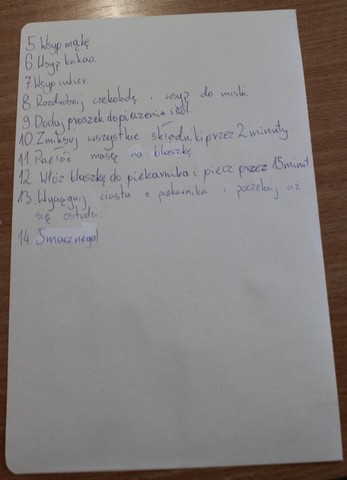 5. Wsyp mąkę
6. Wsyp kakao.
7. Wsyp cukier.
8. Rozdrobnij czekoladę i wsyp do miski.
9. Dodaj proszek do pieczenia i sól.
10. Zmiksuj wszystkie składniki przez 2 minuty
11. masę na blaszkę
12. Włóż blaszkę do piekarnika i piecz przez 15 minut
13. Wyciągnij ciasto z piekarnika i poczekaj aż
się ostudzi.
14. Smacznego!